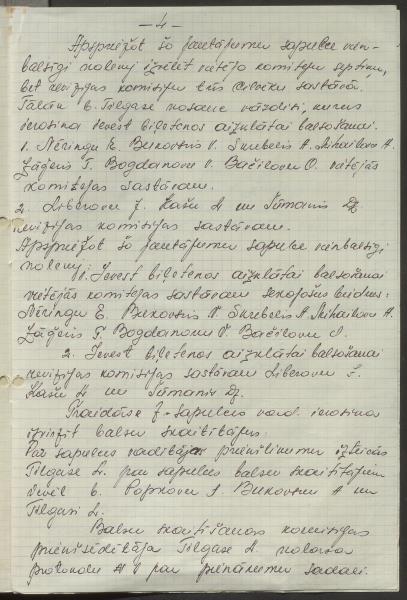 — 4 —
Apspriežot šo jautājumu sapulce vien-
balsīgi nolemj izvēlēt vietējo komiteju septiņu,
bet revīzijas komisiju trīs cilvēku sastāvā.
Tālāk b. Tilgase nosauc vārdiski, kurus
ierosina ievest biļetenos aizklātai balsošanai.
1. Nēringu E. Bukovskis V. Skrebelis A. Mihailovu A.
Zāģeris T. Bogdanovu V. Bačilovu O. vietējās
komitejas sastāvam.
2. Liberovu J. Kašu H un Tūmanis Dz.
revīzijas komisijas sastāvam.
Apspriežot šo jautājumu sapulce vienbalsīgi
nolemj
1. Ievest biļetenos aizklātai balsošanai
vietējās komitejas sastāvam sekojošus biedrus:
Nēringu E. Bukovskis V. Skrebelis A Mihailovu A.
Zāģeris T. Bogdanovu V. Bačilovu O.
2. Ievest biļetenos aizklātai balsošanai
revīzijas komisijas sastāvam Liberovu
Kašu H un Tūmanis Dz.
sapulces vad. ierosina
izvirzīt balsu skaitītājus.
Par sapulces vadītājas priekšlikumu izteicās
Tilgase A. par sapulces balsu skaitītājiem
b. Popkovu Bukovsku A un
Tilgasi A.
Balsu skaitīšanas komisijas
priekšsēdētāja Tilgase A. nolasa
protokolu 1 par pienākumu sadali.